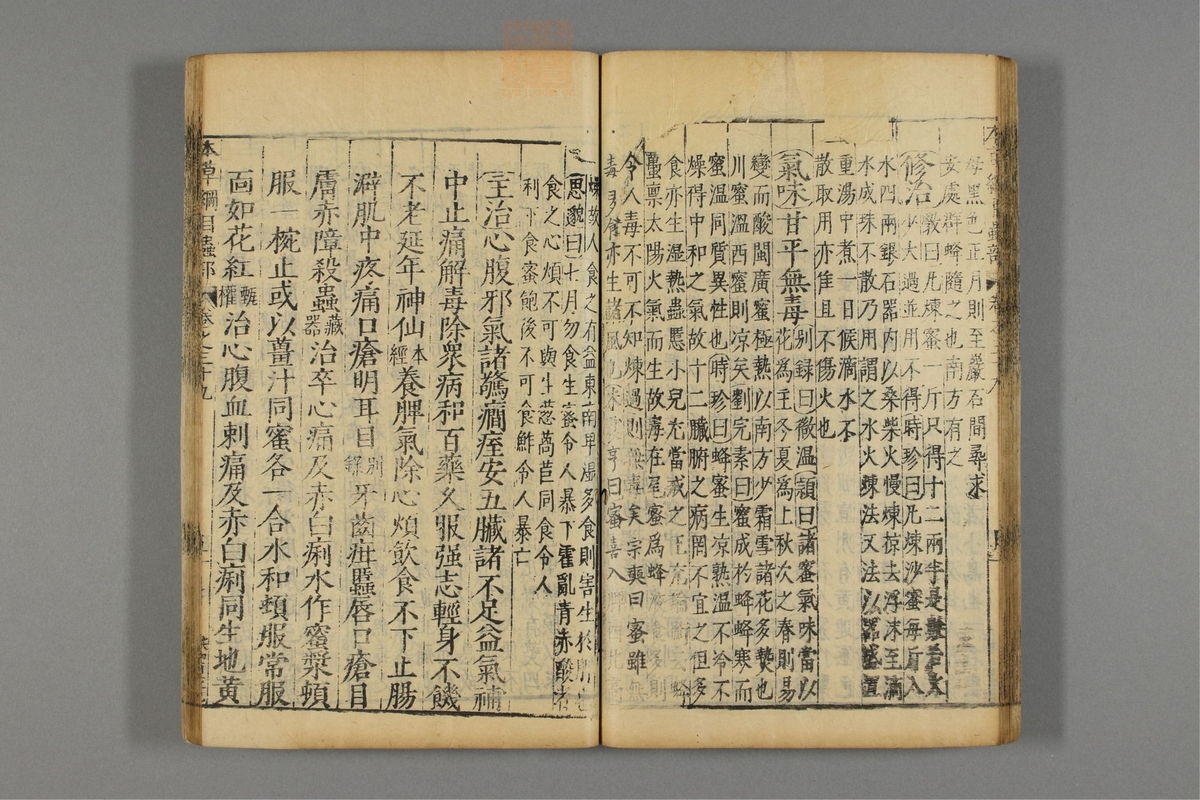 每黑色正月則至巖石間尋求
安處群蜂隨之也南方有之
修治斅曰凡煉蜜一斤只得十二兩半是數若火
少火過並用不得時珍曰凡煉沙蜜每斤入
水四兩銀石器内以桑柴火慢煉掠去浮沫至滴
水成珠不散乃用謂之水火煉法又法以器盛置
重湯中煮一日候滴水不
散取用亦佳且不傷火也
氣味甘平無毒别録曰微温頴曰諸蜜氣味當以
花爲主冬夏爲上秋次之春則易
變而酸閩廣蜜極熱以南方少霜雪諸花多熱也
川蜜溫西蜜則凉矣劉完素曰蜜成於蜂蜂寒而
蜜温同質異性也時珍曰蜂蜜生凉熟温不冷不
燥得中和之氣故十二臟腑之病罔不宜之但多
食亦生湿熱蟲䘌小兒尤當戒之王充論衡云蜂
蠆禀太陽火氣而生故毒在尾蜜爲蜂
令人毒不可不知煉過則無毒矣宗奭曰蜜雖無
毒多食亦生諸風也朱震亨曰蜜喜入
燥故人食之有益東南卑濕多食則害生於脾也
思邈曰七月勿食生蜜令人暴下霍亂青赤酸者
食之心煩不可與生葱萵苣同食令人
利下食蜜飽後不可食鮓令人暴亡
主治心腹邪氣諸驚癇痓安五臟諸不足益氣補
中止痛解毒除衆病和百藥久服强志輕身不饑
不老延年神仙本經養脾氣除心煩飲食不下止腸
澼肌中疼痛口瘡明耳目别録牙齒疳䘌唇口瘡目
膚赤障殺蟲藏器治卒心痛及赤白痢水作蜜漿頓
服一椀止或以薑汁同蜜各一合水和頓服常服
面如花紅甄權治心腹血刺痛及赤白痢同生地黃
本草綱目蟲部 卷之三十九